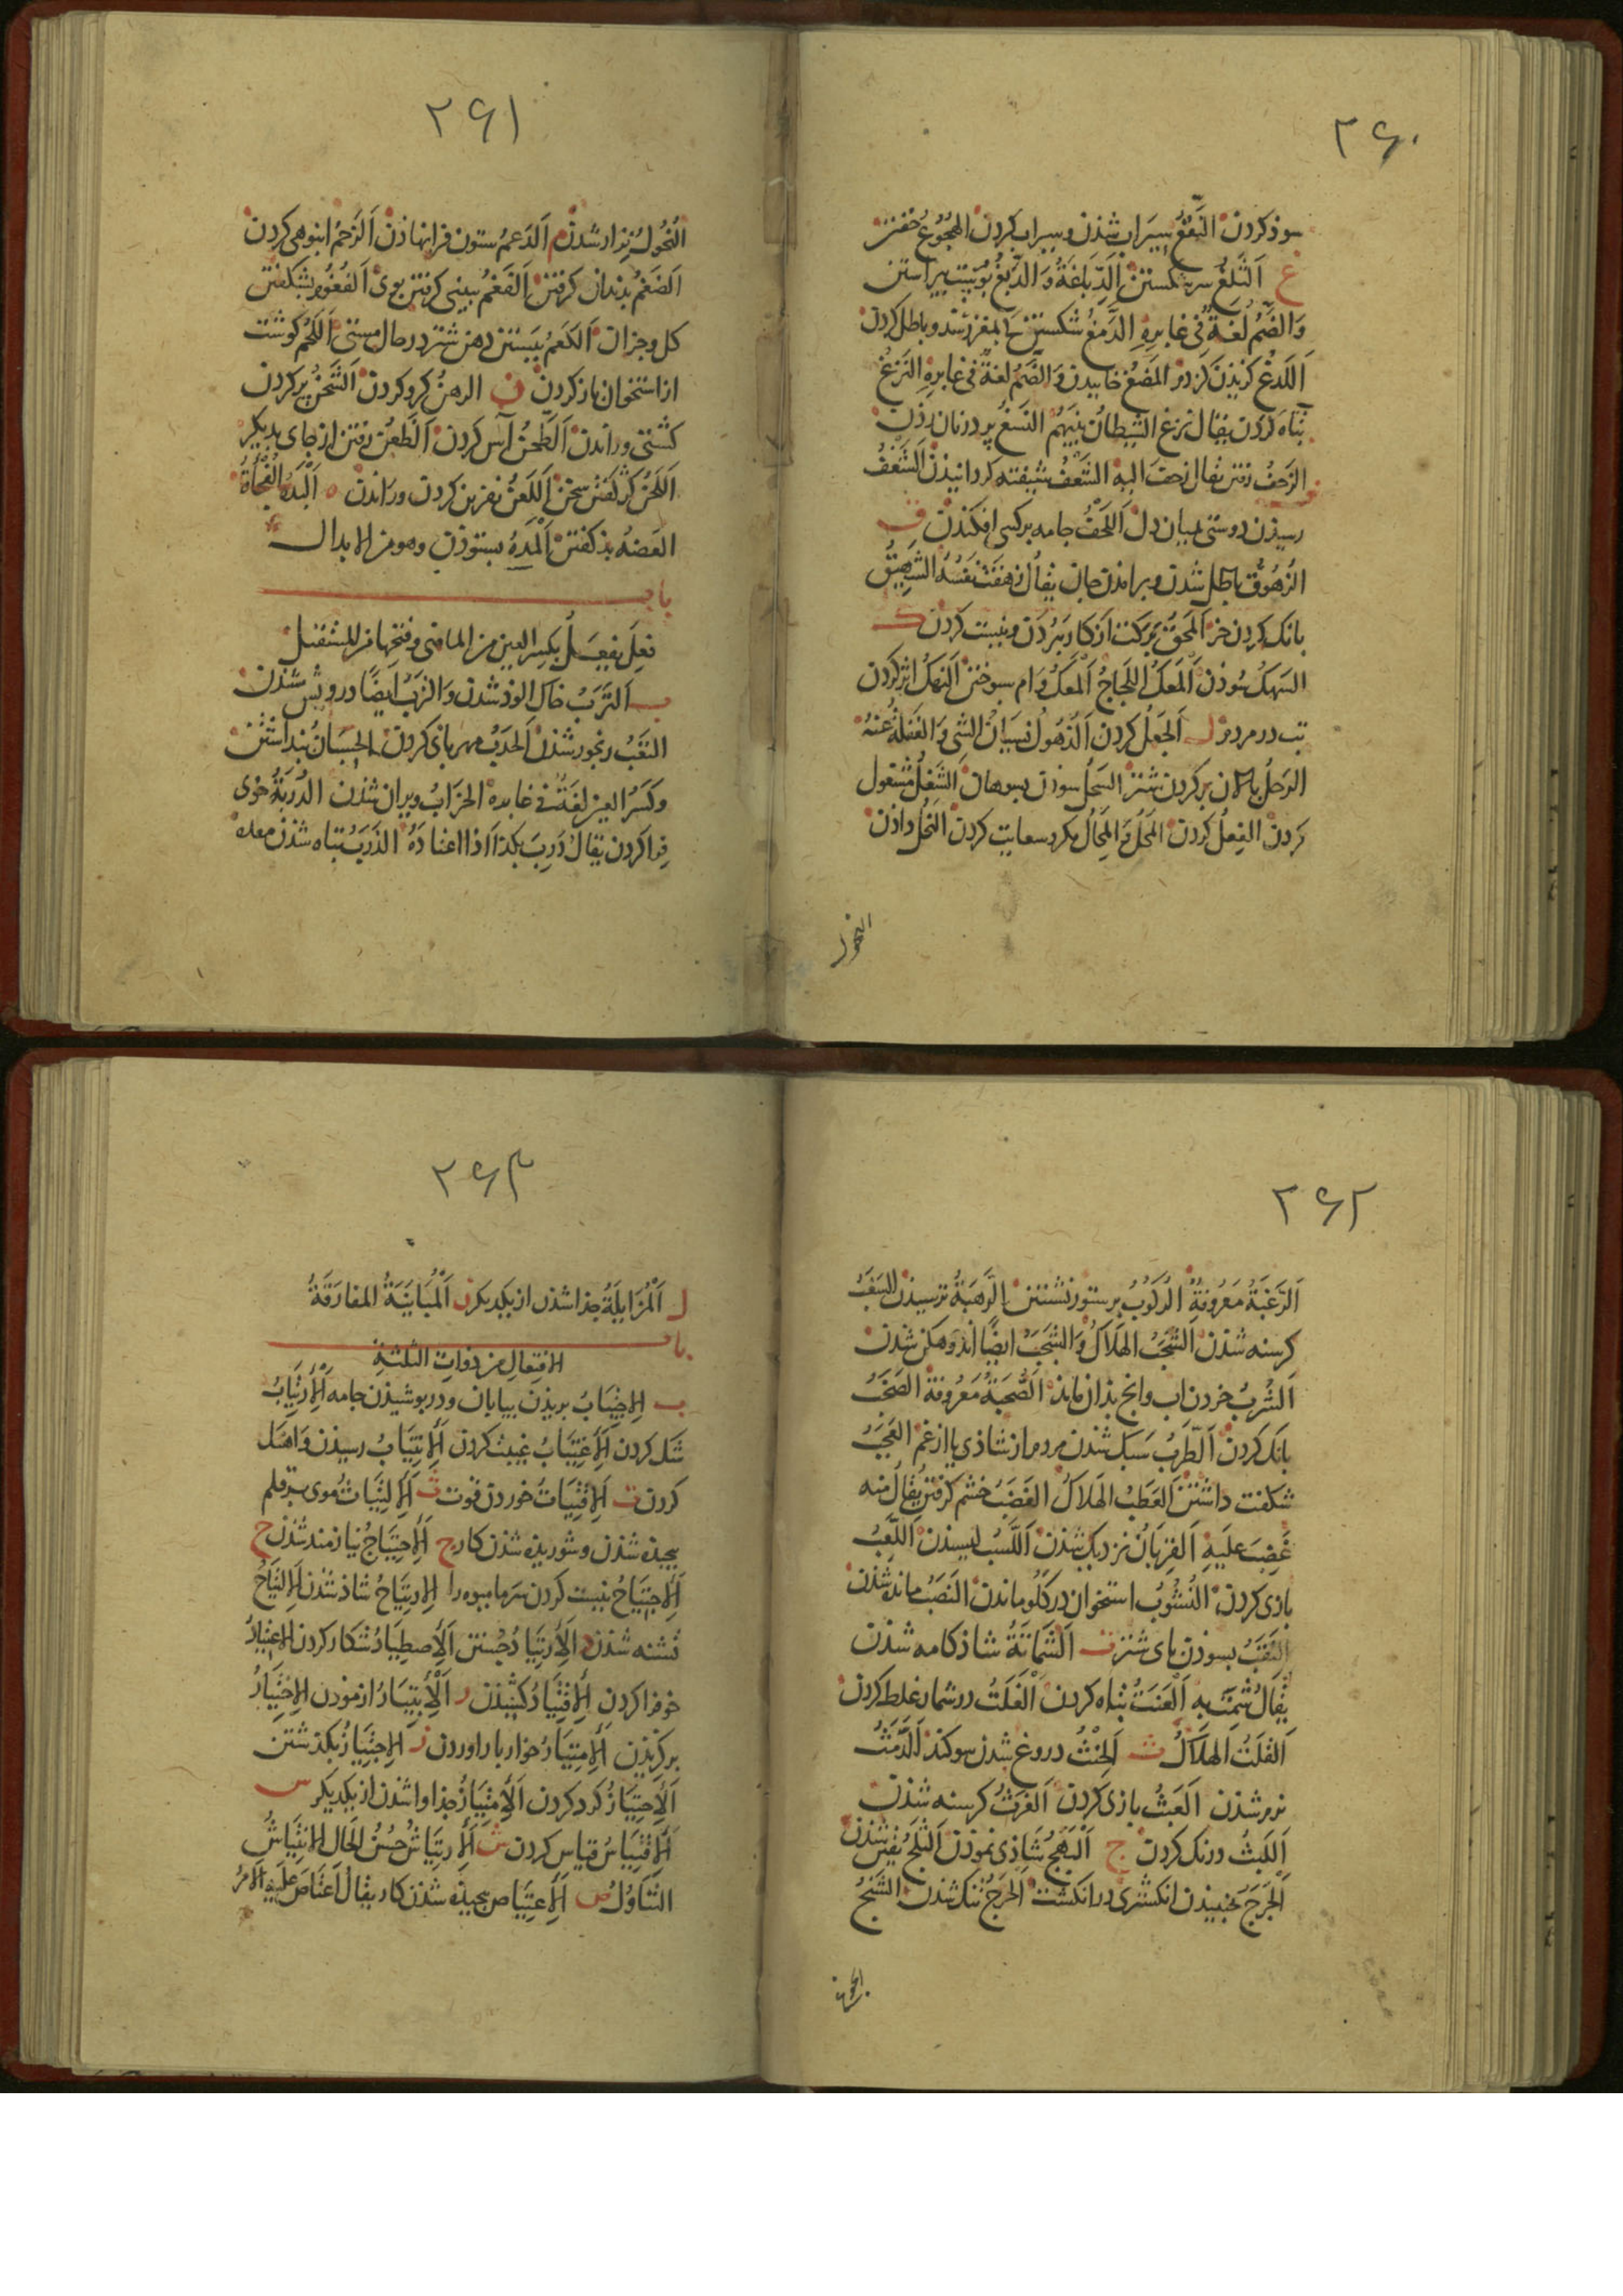 ۲۶۰
سوذ کردن النَّقْعُ سیراب شدن و سیراب کردن الهُجُوعُ خفتن
غ اَلثَّلْغُ سر شکستن اَلدِّبَاغَةُ وَالدَّبْغُ پوست پیراستن
وَالضَّمُّ لُغَةٌ فِی غابِرِهِ الدَّمْغُ شکستن تا بمغز رسد و باطل کردن
اَللَّدْغُ گزیذن کژدم المَضْغُ خاییدن وَالضَّمُّ لغةٌ فی غابره النَّزْغُ
تباه کردن یقال نزغ الشیطان بینهم النَّسْغُ بر دزنان زدن
ف الزَّحْفُ رفتن یقال زحف الیه الشَّعْفُ شیفته کردانیذن اَلشَّغْفُ
رسیذن دوستی بمیان دل اَللَّحْفُ جامه بر کسی افکندن ق
الزُّهُوقُ باطل شدن و برامدن جان یقال زهقت نفسه الشَّهِیقُ
بانک کردن خر اَلمَحْقُ برکت از کار ببردن و نیست کردن ک
السَّهْکُ سوذن اَلْمَعْکُ اللَّجَاجُ اَلْمَعْکُ وام سوختن اَلنَّهْکُ اثر کردن
تب در مردم ل اَلجَعْلُ کردن اَلذُّهُولُ نسیان الشی وَالغَفْلَةُ عنهُ
الرَّحْلُ بالان بر کردن شتر السَّحْلُ سوذن بسوهان الشَّغْلُ مشغول
کردن الفِعْلُ کردن المَحْلُ وَالمِحَالُ مکر و سعایت کردن النُّحْلُ داذن
النحول
۲۶۱
النُّحُولُ نزار شدن م اَلدَّعْمُ ستون فرا نهاذن اَلزَّحْمُ انبوهی کردن
اَلضَّغْمُ بدندان کرفتن اَلفَغْمُ ببینی کرفتن بوی اَلفُغُومُ بشکفتن
کل و جزان اَلکَعْمُ ببستن دهن شتر در حال مستی اَللَّحْمُ کوشت
از استخوان باز کردن ن الرهنُ کرو کردن اَلشَّحْنُ پر کردن
کشتی و راندن اَلطَّحْنُ آس کردن اَلظَّعْنُ رفتن از جای بدیکر
اَللَّحْنُ کژ کفتن سخن اَللَّعْنُ نفرین کردن و راندن ه اَلْبَدْهُ الْمُفَاجَأَةُ
العَضْهُ بذ کفتن اَلْمَدْهُ بستوذن وهو من الابدال
باب
فَعِلَ یَفْعَلُ بکسر العین من الماضی وفتحها من المستقبل
ب اَلتَّرَبُ خاک الوذ شدن وَالتَّرَبُ ایضًا درویش شدن
التَّعَبُ رنجور شدن اَلحَدَبُ مهربانی کردن الحِسْبَانُ بنداشتن
وکسر العین لغة فی غابره الخَرَابُ ویران شذن الدُّرْبَةُ خوی
فرا کردن یقال دَرِبَ بکذا اذا اعتاده الذَّرَبُ تباه شذن معده
۲۶۲
اَلرَّغْبَةُ مَعْرُوفَةٌ الرُّکُوبُ بر ستور نشستن الرَّهْبَةُ ترسیدن السَّغَبُ
کرسنه شذن اَلشَّجَبُ الهَلَاکُ وَالشَّجَبُ ایضًا اندوهکن شدن
اَلشُّرْبُ خردن اب وانج بذان ماند اَلصُّحْبَةُ مَعْرُوفَةٌ الصَّخَبُ
بانک کردن اَلطَّرَبُ سبک شذن مردم از شاذی یا از غم العَجَبُ
شکفت داشتن اَلعَطَبُ الهَلَاکُ الغَضَبُ خشم کرفتن یُقَالُ منه
غَضِبَ عَلَیْهِ اَلقِرْبَانُ نزدیک شدن اَللَّسْبُ لیسیدن اَللَّعِبُ
بازی کردن النُّشُوبُ استخوان در کلو ماندن النَّصَبُ مانده شدن
النَّقَبُ بسوذن پای شتر ت اَلشَّمَاتَةُ شاذ کامه شدن
یُقَالُ شَمِتَ بِهِ اَلْعَنَتُ تباه کردن اَلْغَلَتُ در شمار غلط کردن
اَلفَلَتُ الهَلَاکُ ث اَلحِنْثُ دروغ شدن سوکند اَلدَّمَثُ
نرم شذن اَلعَبَثُ بازی کردن اَلغَرَثُ کرسنه شدن
اَللَّبْثُ درنک کردن ج اَلْبَهَجُ شاذی نمودن اَلثَّلَجُ یقین شدن
اَلْجَرَجُ جنبیدن انکشتری در انکشت اَلحَرَجُ تنک شدن الشَّنَجُ
۲۶۳
ل اَلْمُزَایَلَةُ جذا شذن از یکدیکر ن اَلْمُبَایَنَةُ المفارَقَةُ
باب
الافتعال من ذوات الثلثة
ب اَلاِجْتِیَابُ بریدن بیابان و در بوشیذن جامه اَلْاِرْتِیَابُ
شک کردن اَلْاِغْتِیَابُ غیبت کردن اَلْاِنْتِیَابُ رسیدن وَ
کردن ت اَلْاِقْتِیَاتُ خوردن قوت ث اَلْاِلْتِیَاثُ موی بر قلم
بیجیده شذن و شوریذه شذن کار ج اَلْاِحْتِیَاجُ نیازمند شذن ح
اَلْاِجْتِیَاحُ نیست کردن سرما میوه را الْاِرْتِیَاحُ شاذ شدن اَلْاِلْتِیَاحُ
تشنه شذن د اَلْاِرْتِیَادُ جُستن اَلْاِصْطِیَادُ شکار کردن الاعْتِیَادُ
خو فرا کردن اَلْاِقْتِیَادُ کشیذن ر اَلْاِبْتِیَارُ ازمودن الاِخْتِیَارُ
برکزیذن اَلْاِمْتِیَارُ خوار بار اوردن ز الاِجْتِیَازُ بکذشتن
اَلْاِحْتِیَازُ کرد کردن اَلْاِمْتِیَازُ جذا وا شدن از یکدیکر س
اَلْاِقْتِیَاسُ قیاس کردن ش اَلْاِرْتِیَاشُ حُسْنُ الحَال الاِنْتِیَاشُ
التَّنَاوُلُ ص اَلْاِعْتِیَاصُ بیجیذه شذن کار یقالُ اعتَاصَ علیه الامرُ